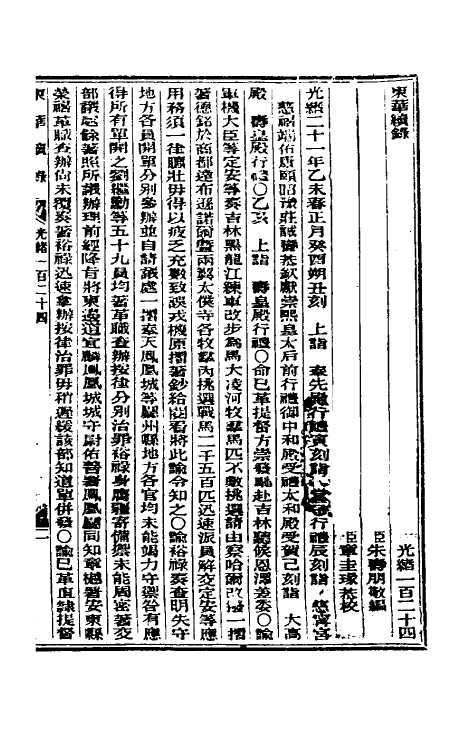 東華續錄
光緒一百二十四
臣朱壽朋敬編
臣章圭瑑恭校
光緒二十一年乙未春正月癸酉朔丑刻 上詣 奉先殿行禮寅刻詣 行禮辰刻詣 慈寧宮
慈禧端佑康頤昭豫莊誠壽恭欽獻崇熙皇太后前行禮御中和殿受禮太和殿受賀己刻詣 大高
殿 壽皇殿行禮〇乙亥 上詣 壽皇殿行禮〇命已革提督方崇發馳赴吉林聽候恩澤差委〇諭
軍機大臣等定安等奏吉林黑龍江練軍改步爲馬大凌河牧羣馬匹不敷挑選請由察哈爾改撥一摺
著德銘於商都達布遜諾爾曁兩翼太僕寺各牧羣內挑選戰馬二千五百匹迅速派員解交定安等應
用務須一律膘壯毋得以疲乏充數致誤戎機原摺著鈔給閱看將此諭令知之〇諭裕祿奏查明失守
地方各員開單分別參辦並自請議處一摺奉天鳳凰城等廳州縣地方各官均未能竭力守禦咎有應
得所有單開之 等五十九員均著革職查辦按律分別治罪裕祿身膺疆寄備禦未能周密著交
部議處餘著照所議辦理前經降旨將東邊道宜麟鳳凰城城守尉佑善署鳳凰廳同知章樾署安東縣
榮禧革職查辦尚未覆奏著裕祿迅速拿辦按律治罪毋稍遲緩該部知道單併發〇諭已革直隸提督
東華續錄 光緒一百二十四 一